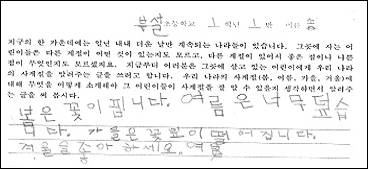 부살 초등학교 1 학년 1 반 이름
지구의 한 가운데에는 일년 내내 더운 날만 계속되는 나라들이 있습니다. 그곳에 사는 어
린이들은 다른 계절이 어떤 것이 있는지도 모르고, 다른 계절이 있어서 좋은 점이나 나쁜
점이 무엇인지도 모르겠지요. 지금부터 여러분은 그곳에 살고 있는 어린이에게 우리 나라
의 사계절을 알려주는 글을 쓰려고 합니다. 우리 나라의 사계절(봄, 여름, 가을, 겨울)에
대해 무엇을 어떻게 소개해야 그 어린이들이 사계절을 잘 알 수 있을지 생각하면서 알려주
는 글을 써 봅시다.
봄은 꽃이핍니다. 여름은너무덥습
니다. 가을은꽃잎이떨어집니다.
겨울을좋아하세요. 여름